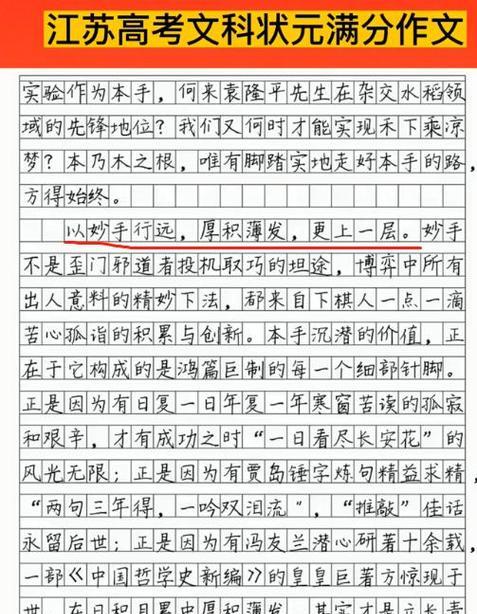 江苏高考文科状元满分作文
实验作为本手，何来袁隆平先生在杂交水稻领
域的先锋地位？我们又何时才能实现禾下乘凉
梦？本乃木之根，唯有脚踏实地走好本手的路，
方得始终。
以妙手行远，厚积薄发，更上一层。妙手
不是歪门邪道者投机取巧的坦途，博弈中所有
出人意料的精妙下法，都来自下棋人一点一滴
苦心孤诣的积累与创新。本手沉潜的价值，正
在于它构成的是鸿篇巨制的每一个细部针脚。
正是因为有日复一日年复一年寒窗苦读的孤寂
和艰辛，才有成功之时“一日看尽长安花”的
风光无限；正是因为有贾岛锤字炼句精益求精，
“两句三年得，一吟双泪流”，“推敲”佳话
永留后世；正是因为有冯友兰潜心研著十余载，
一部《中国哲学史新编》的皇皇巨著方惊现于
世。在日积月累中厚积薄发，其实才是立长青